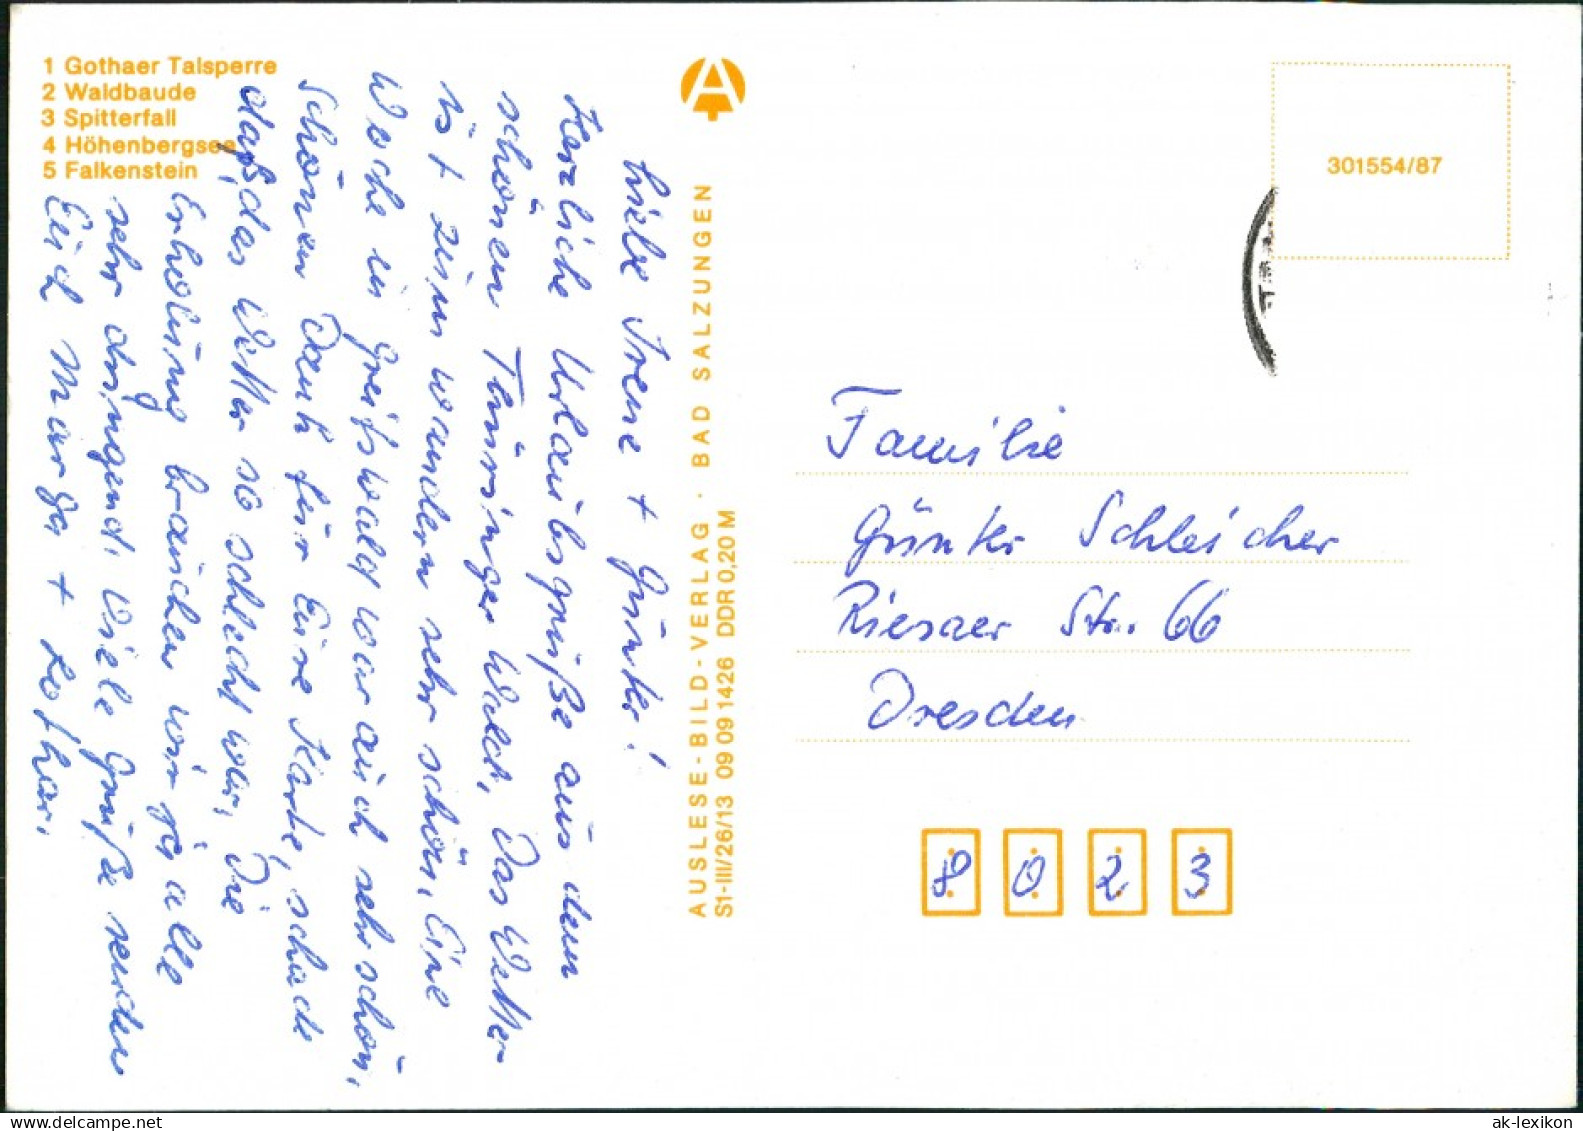 1 Gothaer Talsperre
2 Waldbaude
3 Spitterfall
4 Höhenbergsee
5 Falkenstein
Liebe Irene + Günter!
Herzliche Urlaubsgrüße aus dem
schönen Thüringer Wald. Das Wetter
ist zum wandern sehr schön. Eine
Woche in Greifswald war auch sehr schön.
Schönen Dank für Eure Karte, schade
daß, das Wetter so schlecht war. Die
Erholung brauchen wir ja alle
sehr dringend. Viele Grüße senden
Euch Marga + Lothar.
AUSLESE-BILD-VERLAG · BAD SALZUNGEN
S1-III/26/13 09 09 1426 DDR 0,20 M
301554/87
Familie
Günter Schleicher
Riesaer Str. 66
Dresden
8023
www.delcampe.net
ak-lexikon